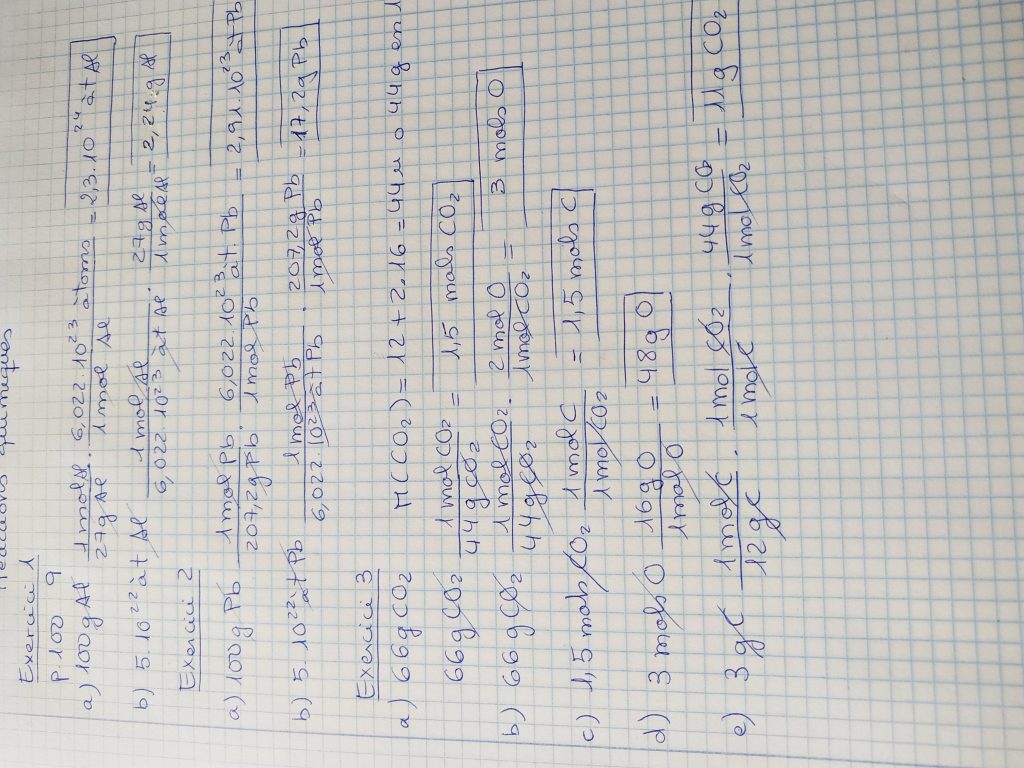 Reaccions químiques
Exercici 1
p.100 9
a) 100g Al · 1mol Al / 27g Al · 6,022·10²³ àtoms / 1mol Al = 2,3·10²⁴ àt Al
b) 5·10²² àt Al · 1mol Al / 6,022·10²³ àt Al · 27g Al / 1mol Al = 2,24·g Al
Exercici 2
a) 100g Pb · 1mol Pb / 207,2g Pb · 6,022·10²³ àt·Pb / 1mol Pb = 2,91·10²³ àt Pb
b) 5·10²² àt Pb · 1mol Pb / 6,022·10²³ àt Pb · 207,2g Pb / 1mol Pb = 17,2g Pb
Exercici 3
a) 66g CO₂ M(CO₂) = 12 + 2·16 = 44u o 44g en 1
66g CO₂ 1mol CO₂ / 44g CO₂ = 1,5 mols CO₂
b) 66g CO₂ 1mol CO₂ / 44g CO₂ · 2mol O / 1mol CO₂ = 3 mols O
c) 1,5 mols CO₂ 1mol C / 1mol CO₂ = 1,5 mols C
d) 3 mols O 16g O / 1mol O = 48g O
e) 3g C 1mol C / 12g C · 1mol CO₂ / 1mol C · 44g CO₂ / 1mol CO₂ = 11g CO₂